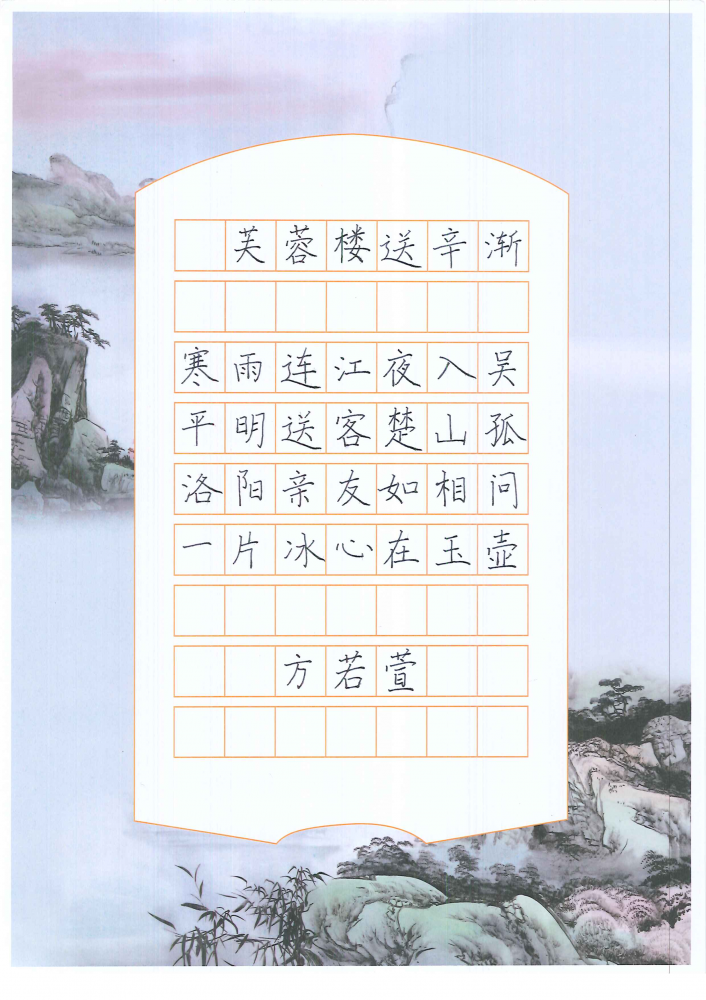 芙蓉楼送辛渐
寒雨连江夜入吴
平明送客楚山孤
洛阳亲友如相问
一片冰心在玉壶
方若萱